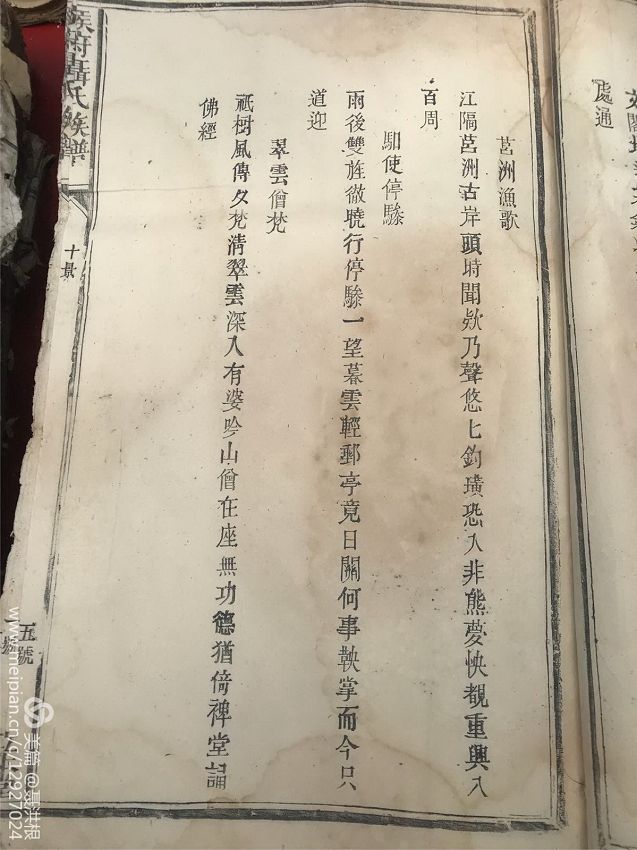 處通
莒洲漁歌
江隔莒洲古岸頭時聞欸乃聲悠匕釣璜恐入非熊夢怏覩重興入
百周
馹使停驂
雨後雙旌徹曉行停驂一望暮雲輕郵亭竟日關何事鞅掌而今只
道迎
翠雲僧梵
祇樹風傳夕梵清翠雲深入有婆吟山僧在座無功德猶倚禅堂誦
佛經
氏族譜
十景
五號
美篇@聂洪根
www.meipian.cn/c/12927024